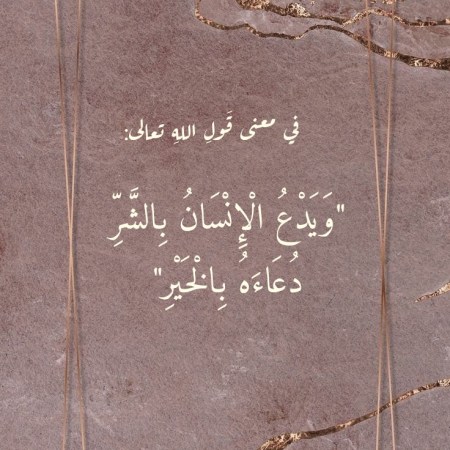 في معنى قَولِ اللهِ تعالى:
"وَيَدْعُ الْإِنْسَانُ بِالشَّرِّ
دُعَاءَهُ بِالْخَيْرِ"